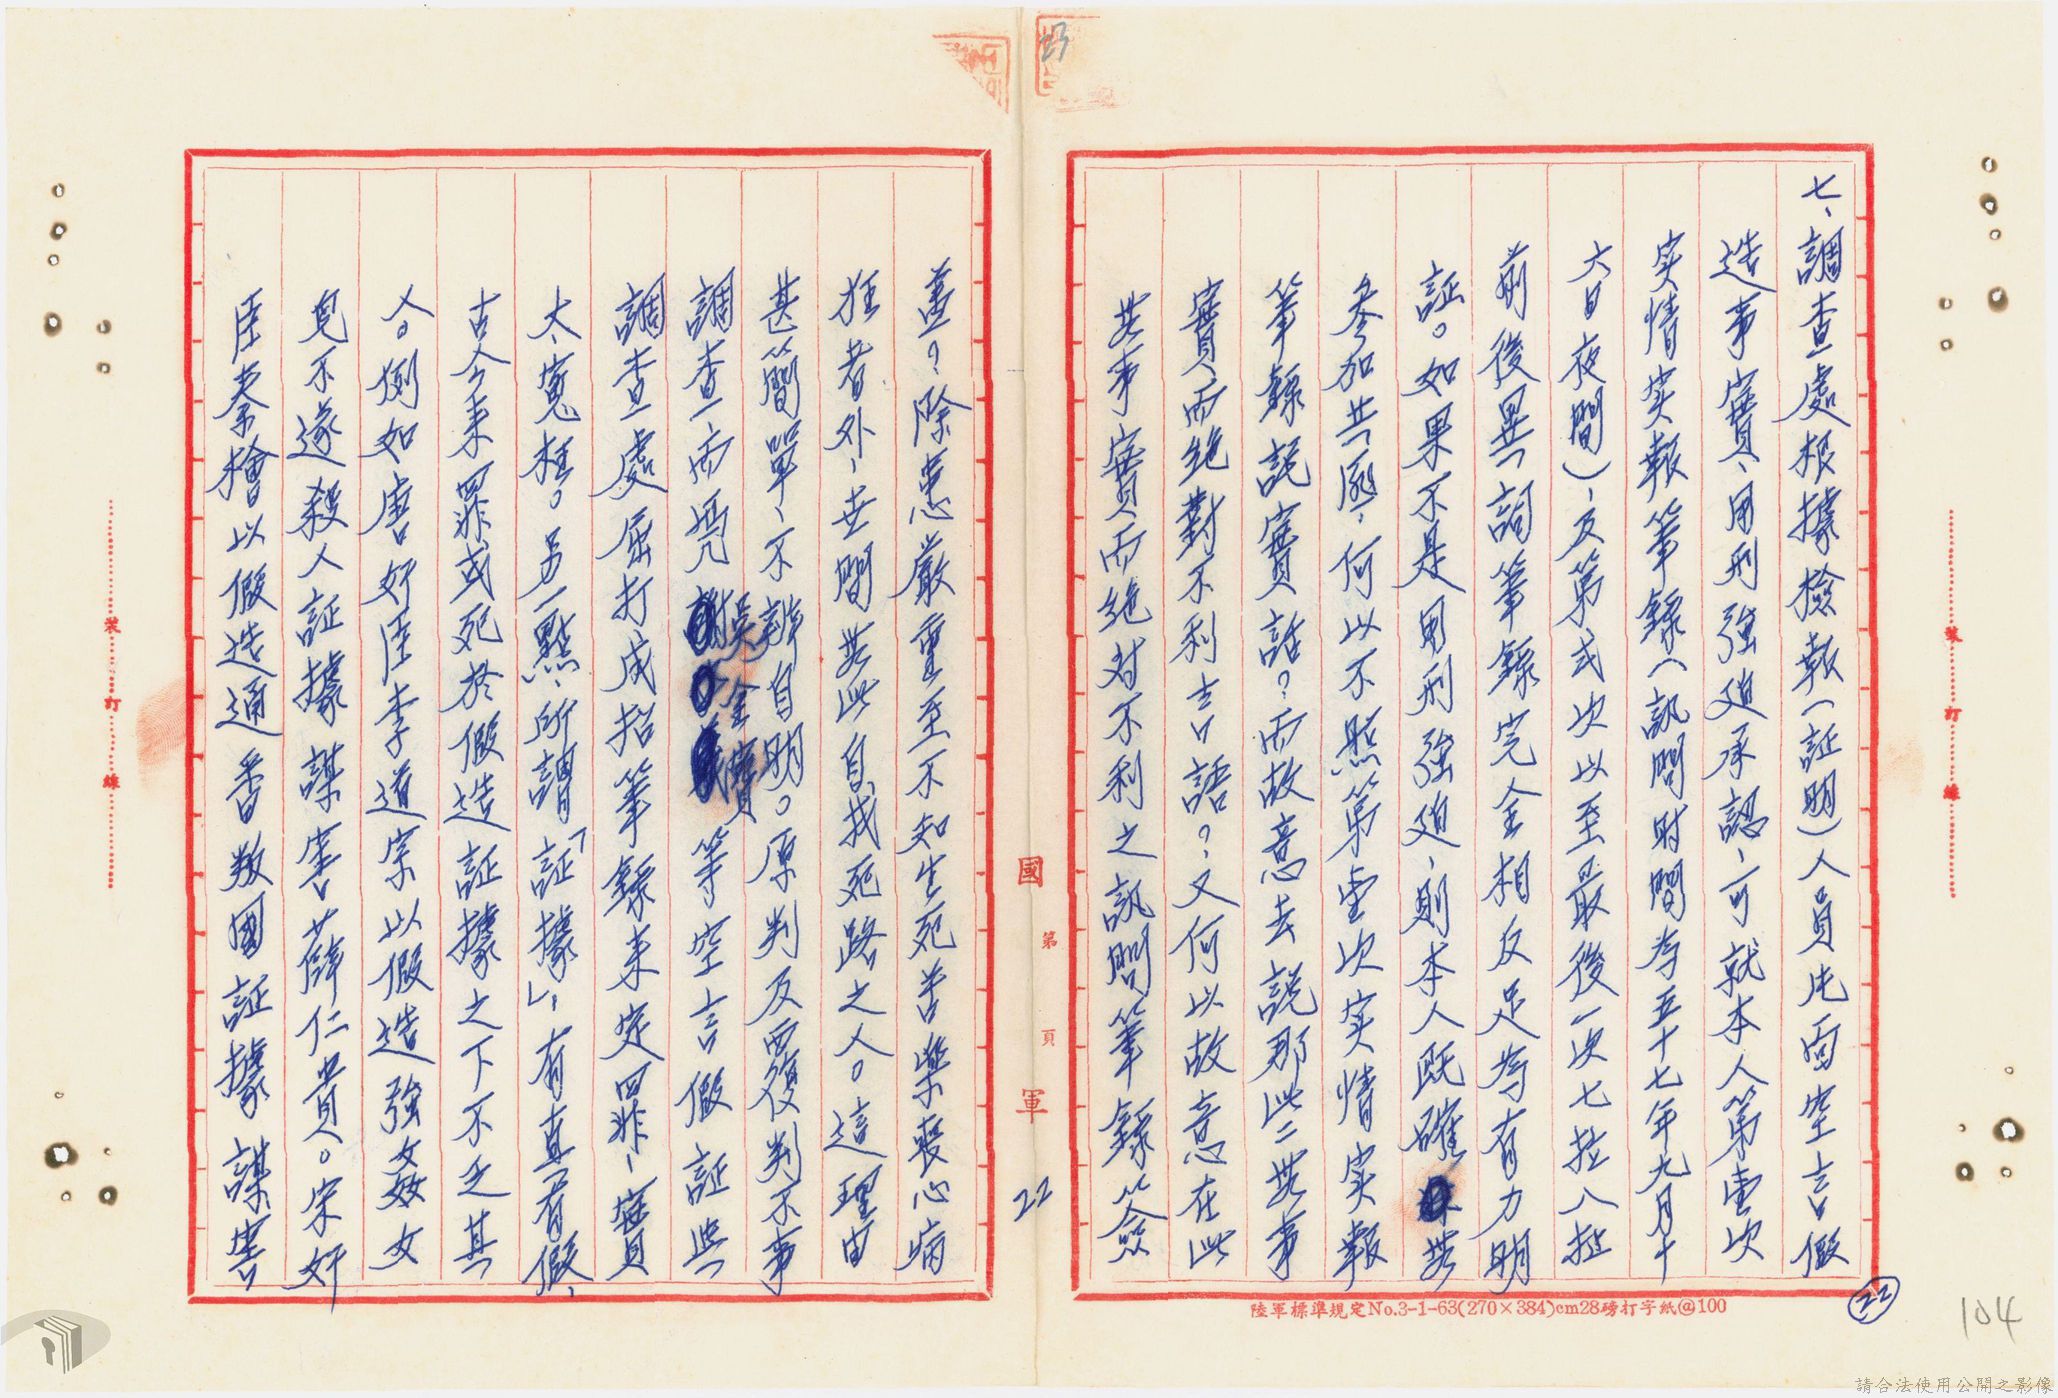 七、調查處根據檢報(証明)人員片面空言假
造事實、用刑強迫承認、可就本人第壹次
实情实報筆錄(訊問时間為五十七年九月十
六日夜間)、及第弍次以至最後一次七拉八扯
前後異詞筆錄完全相反足為有力明
証。如果不是用刑強迫、則本人既確無
參加其匪、何以不照第壹次实情实報
筆錄說實話?而故意去說那些無事
實、而絕對不利言語?、又何以故意在此
無事實而絕对不利之訊問筆錄簽
蓋?除患嚴重至不知生死苦樂喪心病
狂者外、世間無此自找死路之人。這理由
甚簡單、不辨自明。原判及覆判不事
調查、而凭吳金寶等空言假証與
調查處屈打成招筆錄来定罪、寔
太寃枉。另一點、所謂「証據」、有真有假、
古今来罪或死於假造証據之下不乏其
人。例如唐奸臣李道宗以假造強姦女
兒不遂殺人証據謀害薛仁貴。宋奸
臣秦檜以假造通番叛國証據謀害
國
第
頁
軍
22
22
104
23
裝
訂
線
裝
訂
線
陸軍標準規定No.3-1-63(270×384)cm28磅打字紙@100
請合法使用公開之影像